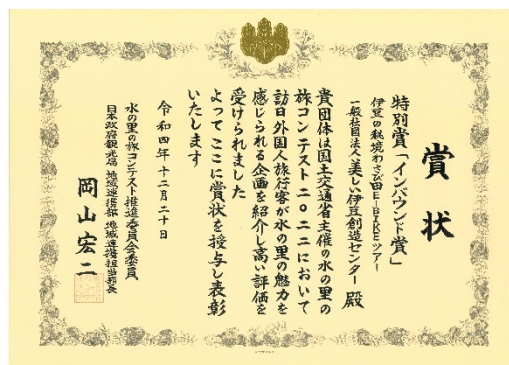 賞状
特別賞「インバウンド賞」
伊豆の秘境わさび田E-BIKEツアー
一般社団法人美しい伊豆創造センター 殿
貴団体は国土交通省主催の水の里の
旅コンテスト二〇二二において
訪日外国人旅行客が水の里の魅力を
感じられる企画を紹介し高い評価を
受けられました
よってここに賞状を授与し表彰
いたします
令和四年十二月二十日
水の里の旅コンテスト推進委員会委員
日本政府観光局 地域連携部 地域連携担当部長
岡山宏二